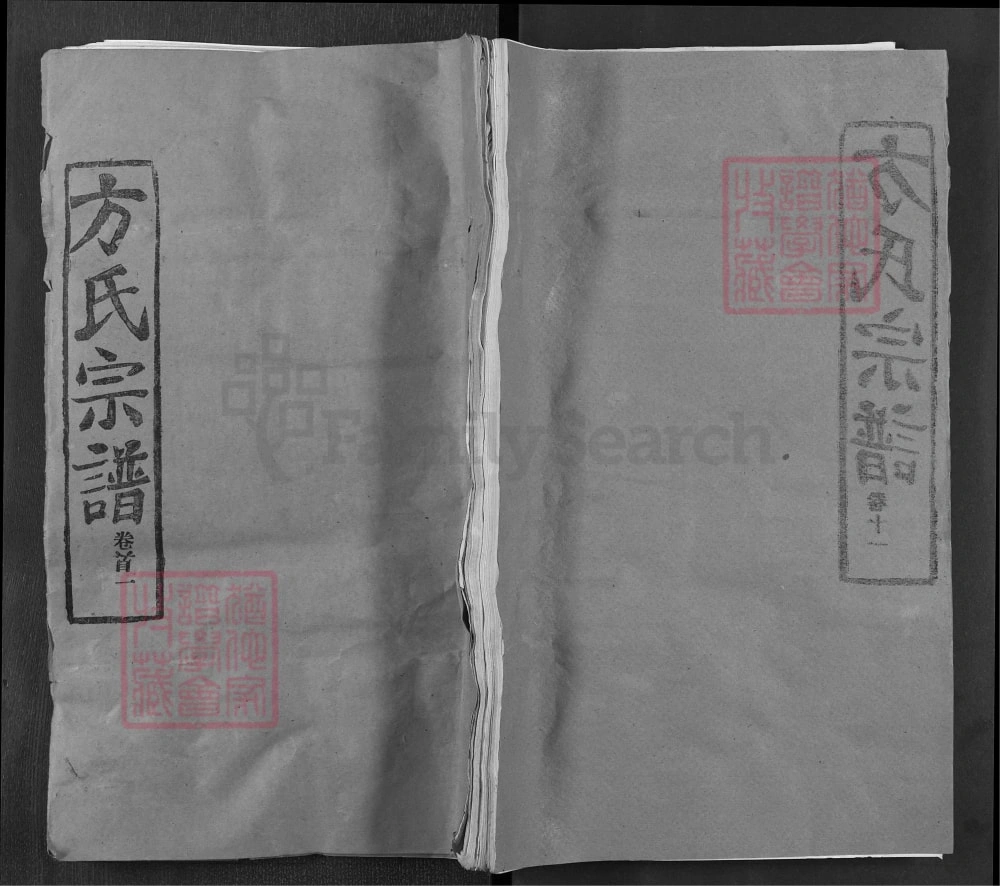 方氏宗譜
卷首一
猶他家
譜學會
珍藏
FamilySearch
方氏宗譜
卷十一
猶他家
譜學會
珍藏